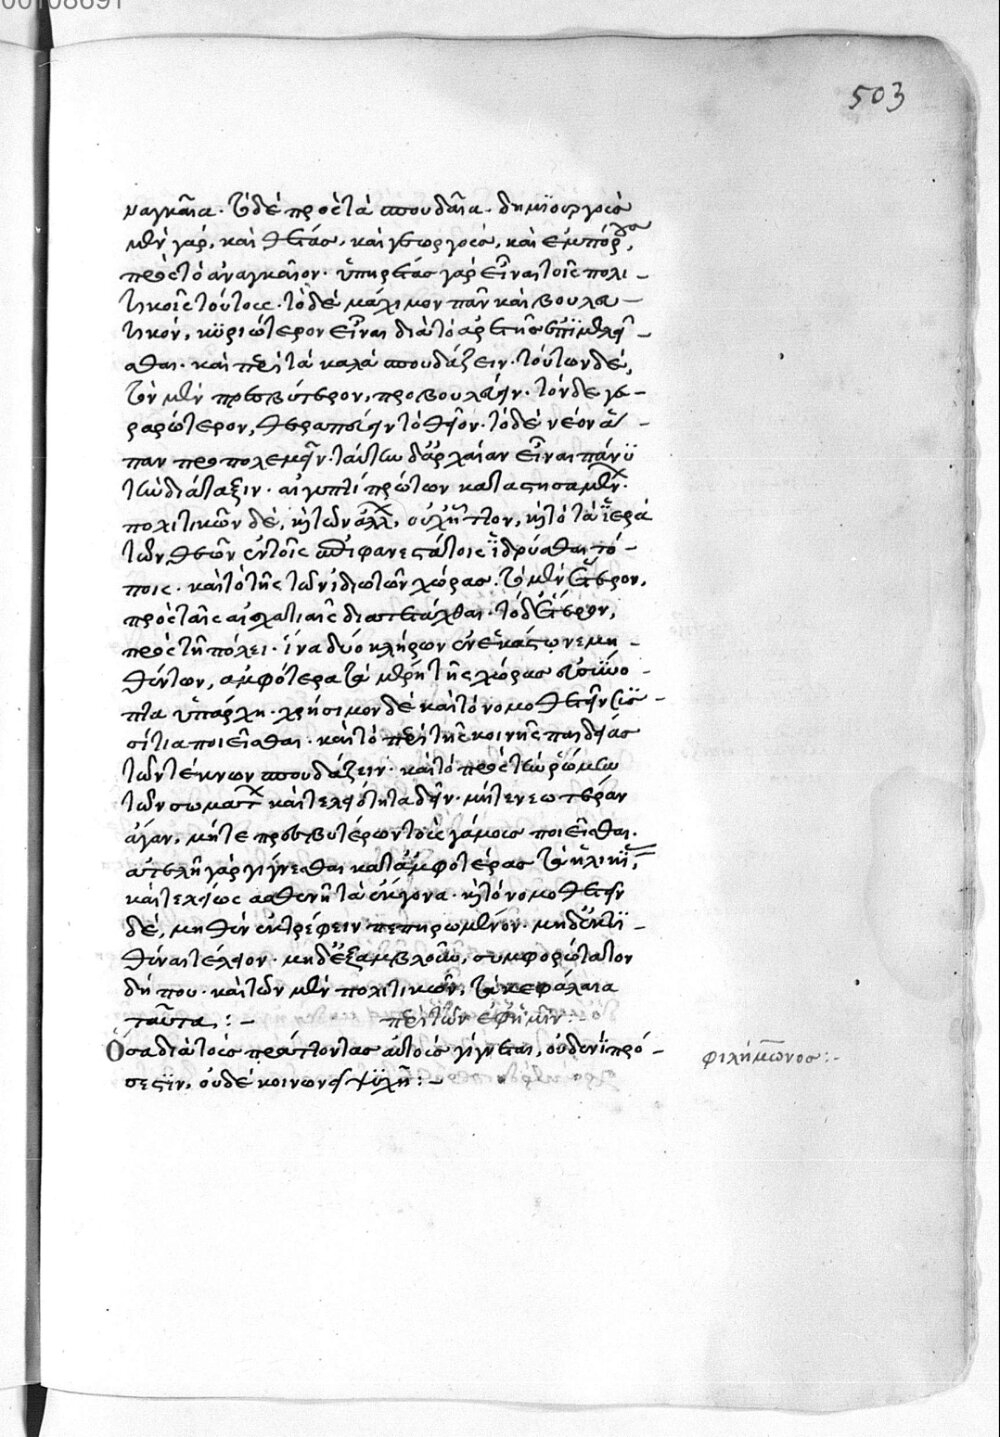 503
ναγκαῖα. τὰ δὲ πρὸς τὰ σπουδαῖα. δημϊουργοὺς
μὲν γὰρ, καὶ θῆτας, καὶ γεωργοὺς, καὶ ἐμπόρους,
πρὸς τὸ ἀναγκαῖον. ὑπηρέτας γὰρ εἶναι τοῖς πολι-
τικοῖς τούτους. τὸ δὲ μάχιμον πᾶν καὶ βουλευ-
τικὸν, κϋριώτερον εἶναι διὰ τὸ ἀρετῆς ἐπϊμελεῖ-
σθαι. καὶ περὶ τὰ καλὰ σπουδάζειν. τούτων δὲ,
τὸν μὲν πρεσβύτερον, προβουλεύειν. τὸν δὲ γε-
ραρώτερον, θεραπεύειν τὸ θεῖον. τὸ δὲ νέον ἅ-
παν προπολεμεῖν. ταύτην δ' ἀρχαίαν εἶναι πάνϋ
τὴν διάταξιν. αἰγυπτί πρώτων καταστησαμέν.
πολιτικῶν δὲ, κ τῶν ἄλλ, οὐχ ἧττον, κ τὸ τὰ ἱερὰ
τῶν θεῶν ἐν τοῖς ἐπιφανεστάτοις ἱδρύσθαι τό-
ποις. καὶ τὸ τῆς τῶν ἰδιωτῶν χώρας. τὸ μὲν ἕτερον,
πρὸς ταῖς ἐσχατιαῖς διατετάχθαι. τὸ δ' ἕτερον,
πρὸς τῇ πόλει. ἵνα δύο κλήρων ἑνὶ ἑκάστῳ νεμη-
θέντων, ἀμφότερα τὰ μέρη τῆς χώρας εὐσύνο-
πτα ὑπάρχη. χρήσιμον δὲ καὶ τὸ νομοθετεῖν συσ-
σίτια ποιεῖσθαι. καὶ τὸ περὶ τῆς κοινῆς παιδείας
τῶν τέκνων σπουδάζειν. καὶ τὸ πρὸς τὴν ῥώμην
τῶν σωμάτ καὶ τελειότητα δεῖν. μήτε νεωτέρων
ἄγαν, μήτε πρεσβυτέρων τοὺς γάμους ποιεῖσθαι.
ἀτελῆ γὰρ γίγνεσθαι κατ' ἀμφοτέρας τὰς ἡλικί,
καὶ τελείως ἀσθενῆ τὰ ἔκγονα. κ τὸ νομοθετεῖν
δὲ, μηθὲν ἐκτρέφειν πεπηρωμένον. μηδ' ἐκτϊ-
θέναι τέλειον. μηδ' ἐξαμβλοῦν, συμφορώτατον
δή που. καὶ τῶν μὲν πολιτικῶν, τὰ κεφάλαια
ταῦτα :- περὶ τῶν ἐφ' ἡμῖν :-
Ὅσα διὰ τοὺς πράττοντας αὐτοὺς γίγνεται, οὐδενὶ πρό-
σεστϊν, οὐδὲ κοινωνεῖ ψυχῇ :-
φιλήμωνος :-